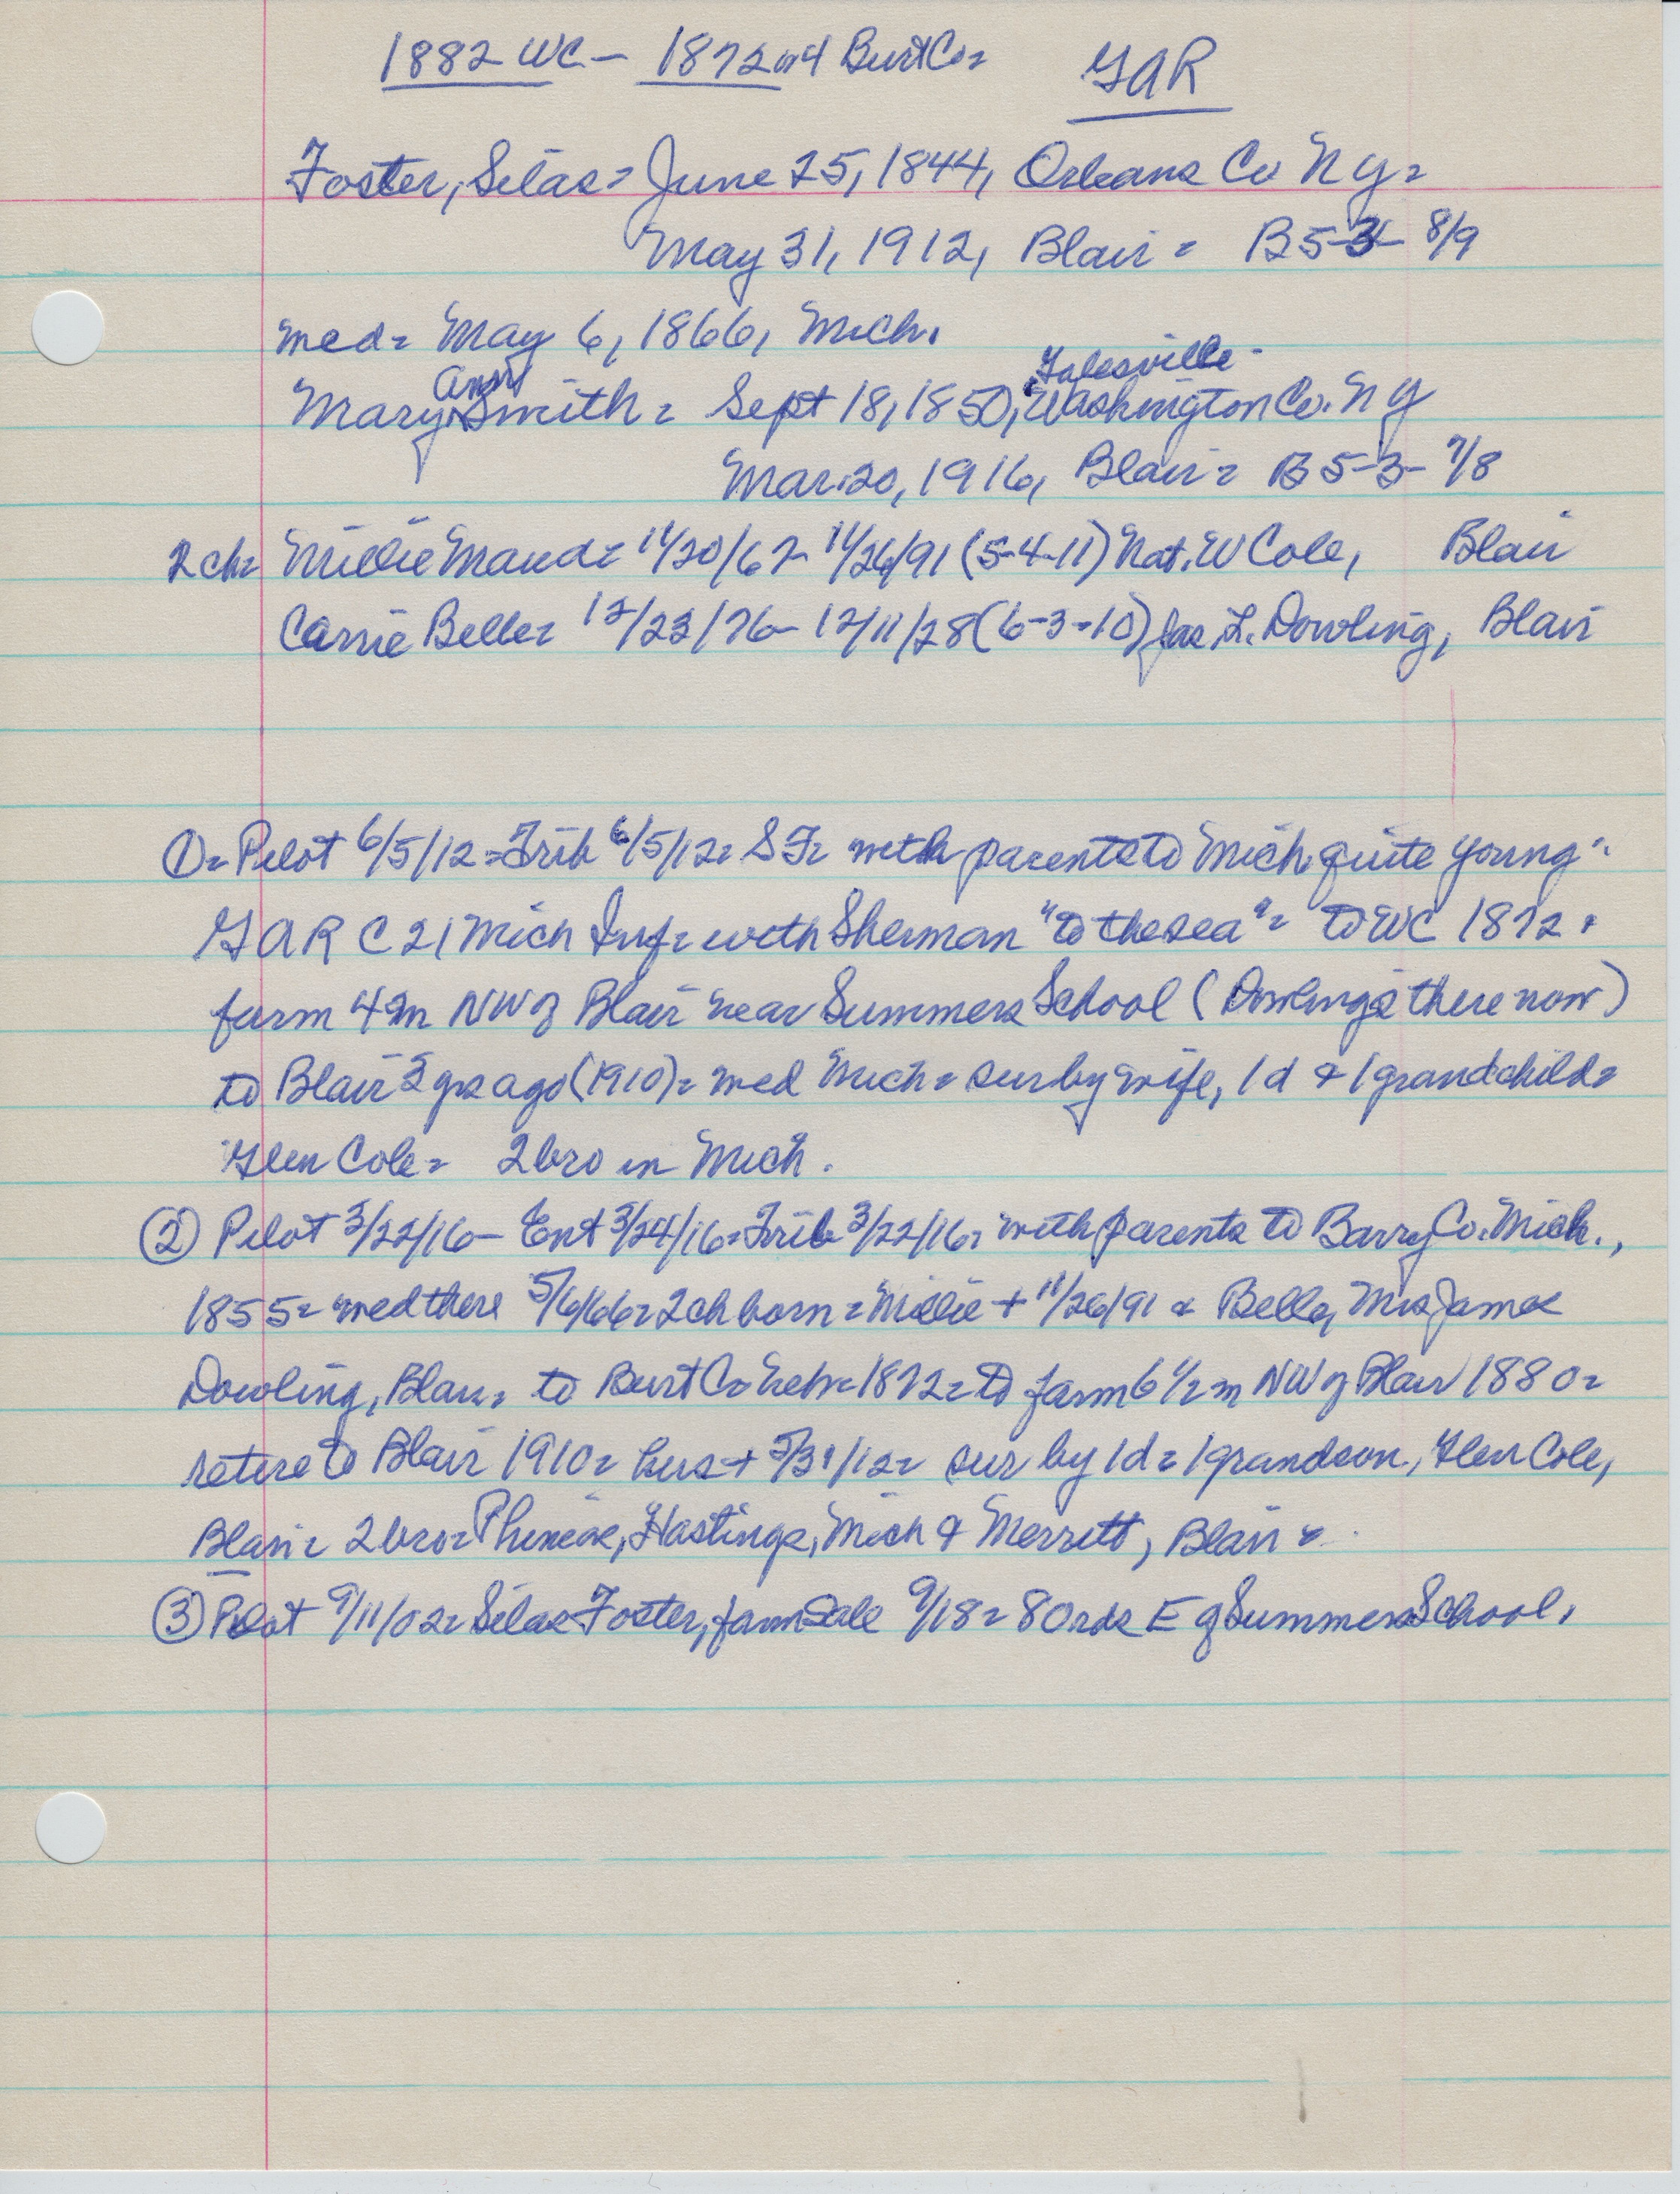 1882 WC – 1872 or 4 Burt Co = GAR
Foster, Silas = June 25, 1844, Orleans Co N Y =
May 31, 1912, Blair = B 5-3- 8/9
med = May 6, 1866, Mich.
Ann Galesville -
Mary Smith = Sept 18, 1850, Washington Co. N Y
Mar. 20, 1916, Blair = B 5-3- 7/8
2 ch = Millie Maud = 11/20/67 - 11/26/91 (5-4-11) Nat. W Cole, Blair
Carrie Belle = 12/23/76 - 12/11/28 (6-3-10) Jas. L. Dowling, Blair
① = Pilot 6/5/12 = Trib 6/5/12 = SF = with parents to Mich quite young =
GAR C 21 Mich Inf = with Sherman "to the sea" = to WC 1872 .
farm 4 m NW of Blair near Summers School (Dowlings there now)
to Blair 2 yrs ago (1910) = med Mich = sur by wife, 1 d & 1 grandchild =
Glen Cole = 2 bro in Mich .
② Pilot 3/22/16 – Ent 3/24/16 = Trib 3/22/16 , with parents to Barry Co. Mich.,
1855 = med there 5/6/66 = 2 ch born = Millie + 11/26/91 & Belle, Mrs James
Dowling, Blair = to Burt Co Neb = 1872 = to farm 6 1/2 m NW of Blair 1880 =
retire to Blair 1910 = hus + 5/31/12 = sur by 1 d = 1 grandson, Glen Cole,
Blair = 2 bro = Phineas, Hastings, Mich & Merritt, Blair
③ Pilot 9/11/02 = Silas Foster, farm sale 9/18 = 80 rds E of Summers School,